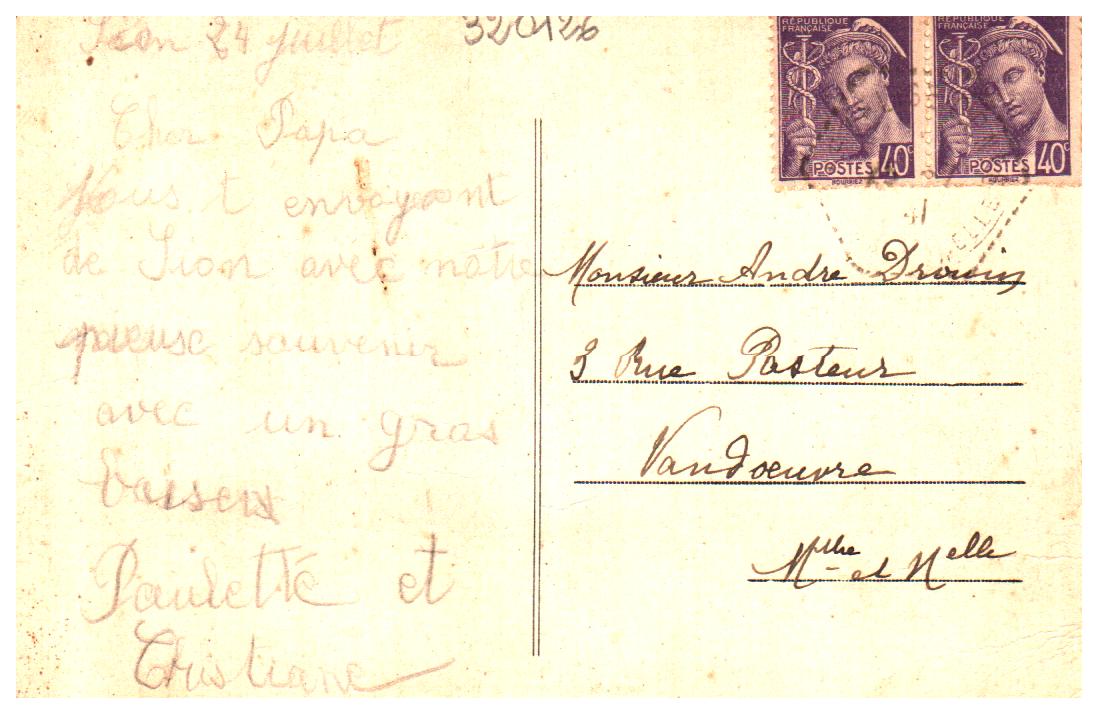 Sion 24 Juillet
320126
Cher Papa
Nous t envoyont
de Sion avec nôtre
pieuse souvenir
avec un gras
baisers
Paulette et
Christiane
RÉPUBLIQUE
FRANÇAISE
POSTES 40c
HOURRIEZ
RÉPUBLIQUE
FRANÇAISE
POSTES 40c
HOURRIEZ
41
Monsieur Andre Drouin
3 Rue Pasteur
Vandoeuvre
Mthe et Melle